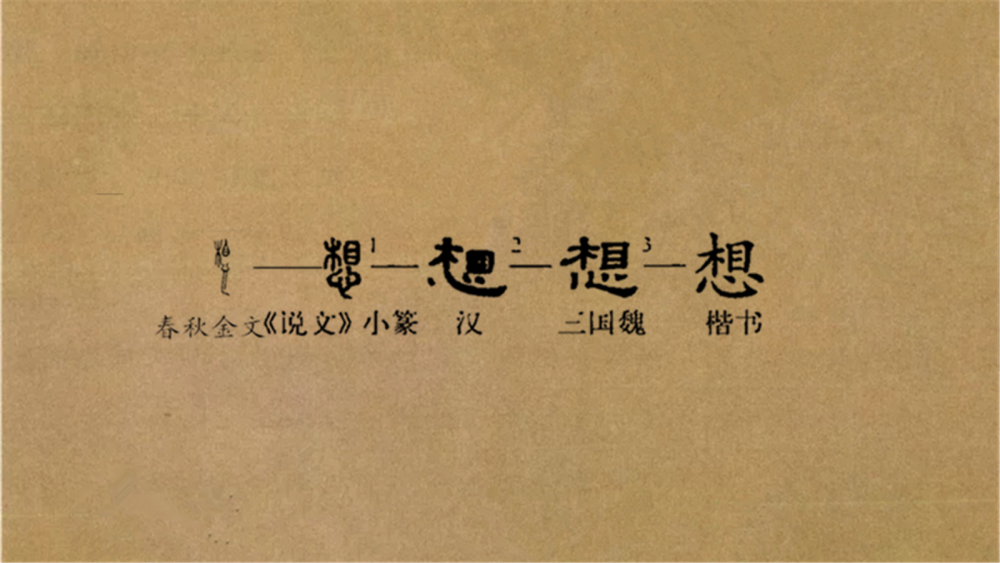 想 想1 想2 想3 想
春秋金文《说文》小篆 汉 三国魏 楷书